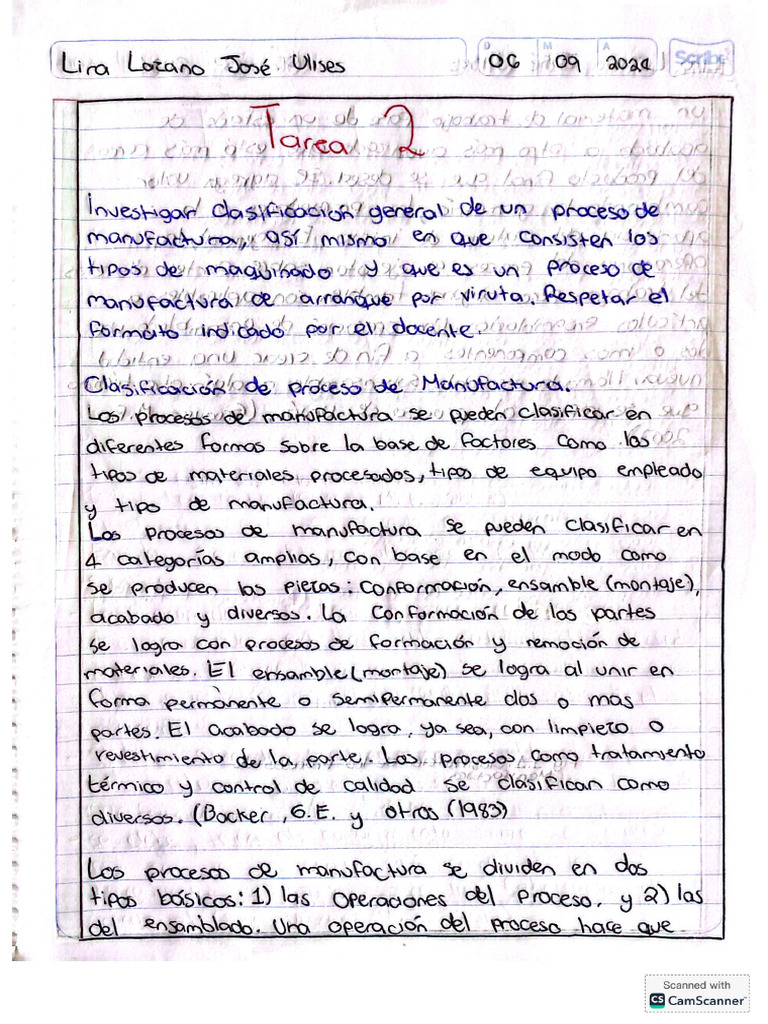 Lira Lozano José Ulises
D M A
06 09 2024 Scribe
Tarea 2
Investigar clasificación general de un proceso de
manufactura, así mismo en que consisten los
tipos de maquinado y que es un proceso de
manufactura de arranque por viruta. Respetar el
formato indicado por el docente.
Clasificación de proceso de Manufactura.
Los procesos de manufactura se pueden clasificar en
diferentes formas sobre la base de factores como los
tipos de materiales procesados, tipos de equipo empleado
y tipo de manufactura.
Los procesos de manufactura se pueden clasificar en
4 categorías amplias, con base en el modo como
se producen las piezas: Conformación, ensamble (montaje),
acabado y diversos. La Conformación de las partes
se logra con procesos de formación y remoción de
materiales. El ensamble (montaje) se logra al unir en
forma permanente o semipermanente dos o mas
partes. El acabado se logra, ya sea, con limpieza o
revestimiento de la parte. Los procesos como tratamiento
térmico y control de calidad se clasifican como
diversos. (Backer, G.E. y otros (1983)
Los procesos de manufactura se dividen en dos
tipos básicos: 1) las operaciones del proceso, y 2) las
del ensamblado. Una operación del proceso hace que
Scanned with
CS CamScanner